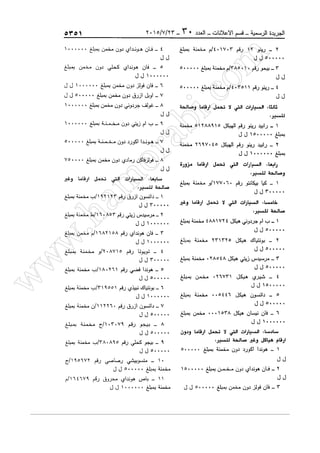 الجريدة الرسمية – قسم الاعلانات – العدد ٣٠ – ٢٠١٥/٧/٢٣ ٥٣٥١
٢ – رينو ١٢ رقم ٤٠١٧٠٣/م مخمنة بمبلغ
٥٠٠٠٠٠ ل ل
٣ – بيجو رقم ٣٨٥٠١٠/م مخمنة بمبلغ ٥٠٠٠٠٠
ل ل
٤ – رينو رقم ٤٠٣٥١١/م مخمنة بمبلغ ٥٠٠٠٠٠
ل ل
ثالثا، السيارات التي لا تحمل ارقاما وصالحة
للسير،
١ – رابيد رينو رقم الهيكل ٥١٢٨٨٩١٥ مخمنة
بمبلغ ١٥٠٠٠٠٠ ل ل
٢ – رابيد رينو رقم الهيكل ٢٦٩٧٠٤٥ مخمنة
بمبلغ ١٠٠٠٠٠٠ ل ل
رابعا، السيارات التي تحمل ارقاما مزورة
وصالحة للسير،
١ – كيا بيكانتو رقم ١٧٧٠٦٠/و مخمنة بمبلغ
٣٠٠٠٠٠٠ ل ل
خامسا، السيارات التي لا تحمل ارقاما وغير
صالحة للسير،
١ – ب ام جردوني هيكل ٤٨٨١٧٢٤ مخمنة بمبلغ
٥٠٠٠٠٠ ل ل
٢ – بونتياك هيكل ٢٣١٣٢٥ مخمنة بمبلغ
٥٠٠٠٠٠ ل ل
٣ – مرسيدس زيتي هيكل ٠٢٨٥٤٨ مخمنة بمبلغ
٥٠٠٠٠٠ ل ل
٤ – شيري هيكل ٠٢٦٧٣١ مخمن بمبلغ
١٥٠٠٠٠٠ ل ل
٥ – داتسون هيكل ٠٠٥٤٤٦ مخمنة بمبلغ
٥٠٠٠٠٠ ل ل
٦ – فان نيسان هيكل ٠٠٠١٥٣٨ مخمن بمبلغ
١٠٠٠٠٠٠ ل ل
سادسا، السيارات التي لا تحمل ارقاما ودون
ارقام هياكل وغير صالحة للسير،
١ – هوندا اكورد دون مخمنة بمبلغ ٥٠٠٠٠٠
ل ل
٢ – فان هونداي دون مخمن بمبلغ ١٥٠٠٠٠٠
ل ل
٣ – فان فولز دون مخمن بمبلغ ٥٠٠٠٠٠ ل ل
٤ – فان هونداي دون مخمن بمبلغ ١٠٠٠٠٠٠
ل ل
٥ – فان هونداي كحلي دون مخمن بمبلغ
١٠٠٠٠٠٠ ل ل
٦ – فان فولز دون مخمن بمبلغ ١٠٠٠٠٠٠ ل ل
٧ – اوبل ازرق دون مخمن بمبلغ ٥٠٠٠٠٠ ل ل
٨ – غولف جردوني دون مخمن بمبلغ ١٠٠٠٠٠٠
ل ل
٦ – ب ام زيتي دون مخمنة بمبلغ ١٠٠٠٠٠٠
ل ل
٧ – هوندا اكورد دون مخمنة بمبلغ ٥٠٠٠٠٠
ل ل
٨ – فولزفاكن رمادي دون مخمن بمبلغ ٧٥٠٠٠٠
ل ل
سابعا، السيارات التي تحمل ارقاما وغير
صالحة للسير،
١ – داتسون ازرق رقم ١٩٢١٢٣/ب مخمنة بمبلغ
٣٠٠٠٠٠ ل ل
٢ – مرسيدس زيتي رقم ١٦٠٨٥٣/ط مخمنة بمبلغ
١٠٠٠٠٠٠ ل ل
٣ – فان هونداي رقم ١٦٨٢١٥٨/م مخمن بمبلغ
١٠٠٠٠٠٠ ل ل
٤ – تويوتا رقم ٢٠٨٧١٥/و مخمنة بمبلغ
٣٠٠٠٠٠ ل ل
٥ – هوندا فضي رقم ١٨٠٢٦١/ب مخمنة بمبلغ
٥٠٠٠٠٠ ل ل
٦ – بونتياك نبيذي رقم ٣١٩٥٥١/ب مخمنة بمبلغ
١٠٠٠٠٠٠ ل ل
٧ – داتسون ازرق رقم ١١٢٢٦٠/ن مخمنة بمبلغ
٥٠٠٠٠٠ ل ل
٨ – بيجو رقم ١٠٣٠٧٩/ج مخمنة بمبلغ
٥٠٠٠٠٠ ل ل
٩ – بيجو كحلي رقم ٣٨٠٨٩٥/ب مخمنة بمبلغ
٥٠٠٠٠٠ ل ل
١٠ – متسوبيشي رصاصي رقم ١٩٥٦٧٢/ج
مخمنة بمبلغ ٥٠٠٠٠٠ ل ل
١١ – باص هونداي محروق رقم ١٦٤٦٧٩/م
مخمنة بمبلغ ١٠٠٠٠٠٠ ل ل